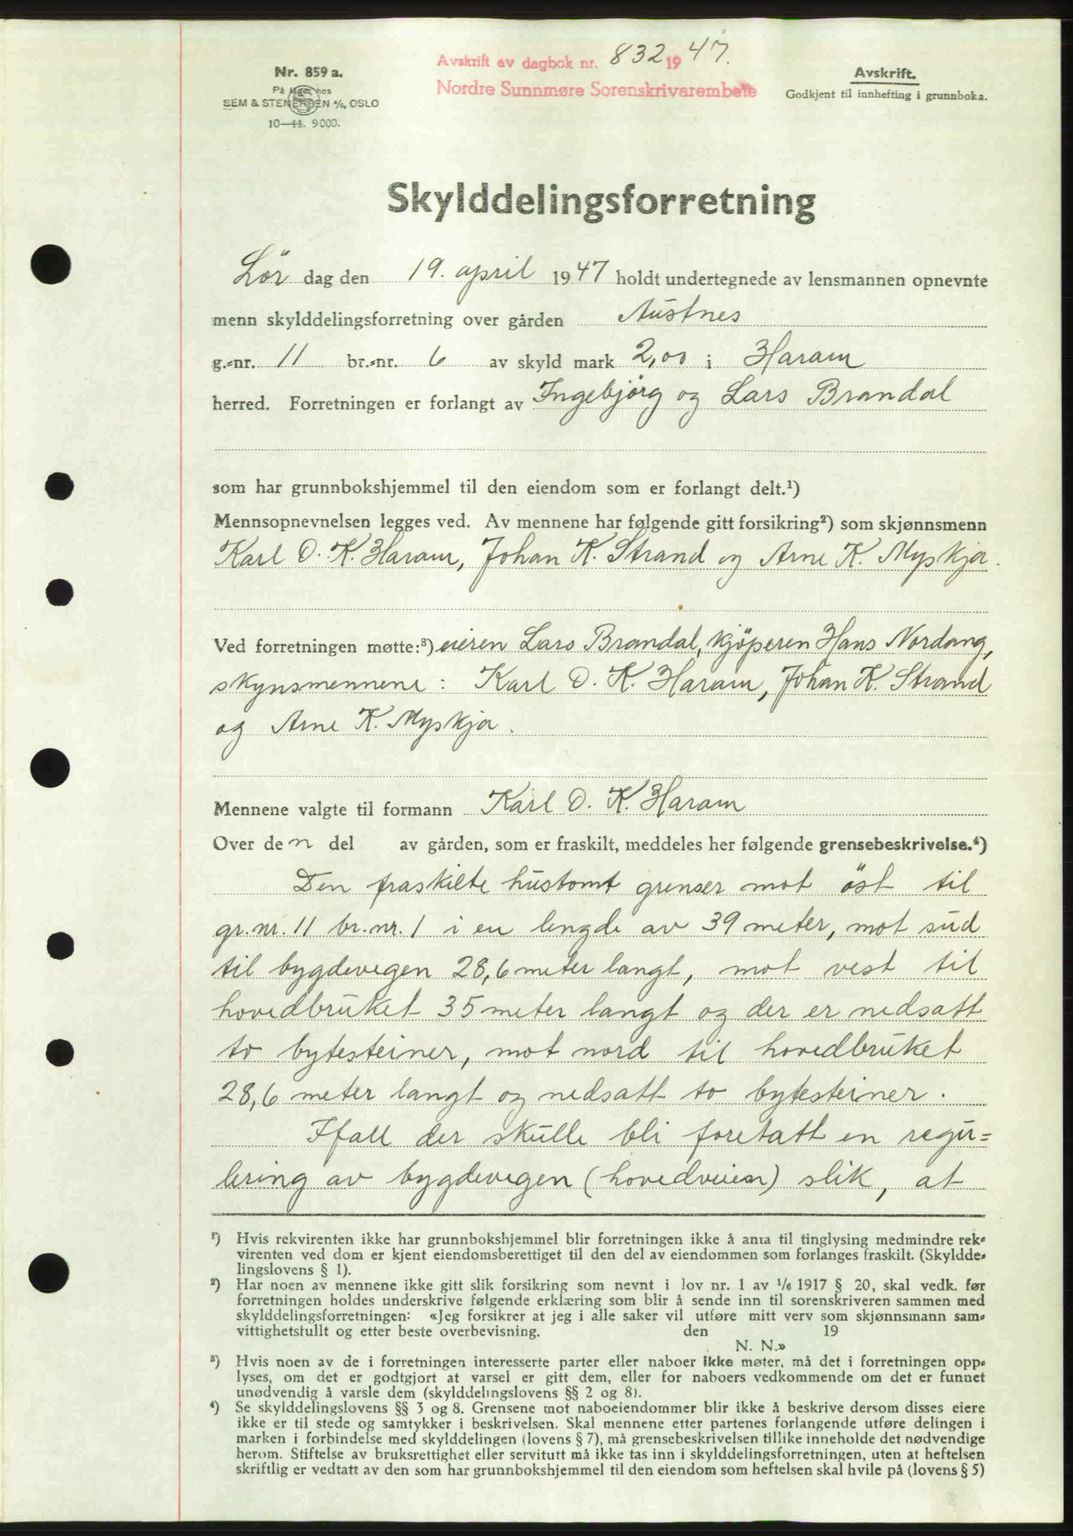 Nr. 859 a.
På lager hos
SEM & STENERSEN A/S, OSLO
10—44. 9000.
Avskrift av dagbok nr. 832 1947.
Nordre Sunnmøre Sorenskrivarembete
Avskrift.
Godkjent til innhefting i grunnboka.
Skylddelingsforretning
Lör dag den 19. april 1947 holdt undertegnede av lensmannen opnevnte
menn skylddelingsforretning over gården Austnes
g.-nr. 11 br.-nr. 6 av skyld mark 2,00 i Haram
herred. Forretningen er forlangt av Ingebjørg og Lars Brandal
som har grunnbokshjemmel til den eiendom som er forlangt delt.¹)
Mennsopnevnelsen legges ved. Av mennene har følgende gitt forsikring²) som skjønnsmenn
Karl O. K. Haram, Johan K. Strand og Arne K. Myskja.
Ved forretningen møtte:³) eieren Lars Brandal, kjöperen Hans Nordang,
skynsmennene: Karl O. K. Haram, Johan K. Strand
og Arne K. Myskja.
Mennene valgte til formann Karl O. K. Haram
Over den del av gården, som er fraskilt, meddeles her følgende grensebeskrivelse.⁴)
Den fraskilte hustomt grenser mot öst til
gr.nr. 11 br.nr. 1 i en lengde av 39 meter, mot süd
til bygdevegen 28,6 meter langt, mot vest til
hovedbruket 35 meter langt og der er nedsatt
to bytesteiner, mot nord til hovedbruket
28,6 meter langt og nedsatt to bytesteiner.
Ifall der skulle bli foretatt en regu=
lering av bygdevegen (hovedveien) slik, at
¹) Hvis rekvirenten ikke har grunnbokshjemmel blir forretningen ikke å anta til tinglysing medmindre rek-
virenten ved dom er kjent eiendomsberettiget til den del av eiendommen som forlanges fraskilt. (Skyldde-
lingslovens § 1).
²) Har noen av mennene ikke gitt slik forsikring som nevnt i lov nr. 1 av 1/6 1917 § 20, skal vedk. før
forretningen holdes underskrive følgende erklæring som blir å sende inn til sorenskriveren sammen med
skylddelingsforretningen: «Jeg forsikrer at jeg i alle saker vil utføre mitt verv som skjønnsmann sam-
vittighetsfullt og etter beste overbevisning. den 19
N. N.»
³) Hvis noen av de i forretningen interesserte parter eller naboer ikke møter, må det i forretningen opp-
lyses, om det er godtgjort at varsel er gitt dem, eller for naboers vedkommende om det er funnet
unødvendig å varsle dem (skylddelingslovens §§ 2 og 8).
⁴) Se skylddelingslovens §§ 3 og 8. Grensene mot naboeiendommer blir ikke å beskrive dersom disses eiere
ikke er til stede og samtykker i beskrivelsen. Skal mennene etter partenes forlangende utføre delingen i
marken i forbindelse med skylddelingen (lovens § 7), må grensebeskrivelsen tillike inneholde det nødvendige
herom. Stiftelse av bruksrettighet eller servitutt må ikke tas inn i skylddelingsforretningen, uten at heftelsen
skriftlig er vedtatt av den som har grunnbokshjemmel til den eiendom som heftelsen skal hvile på (lovens § 5)